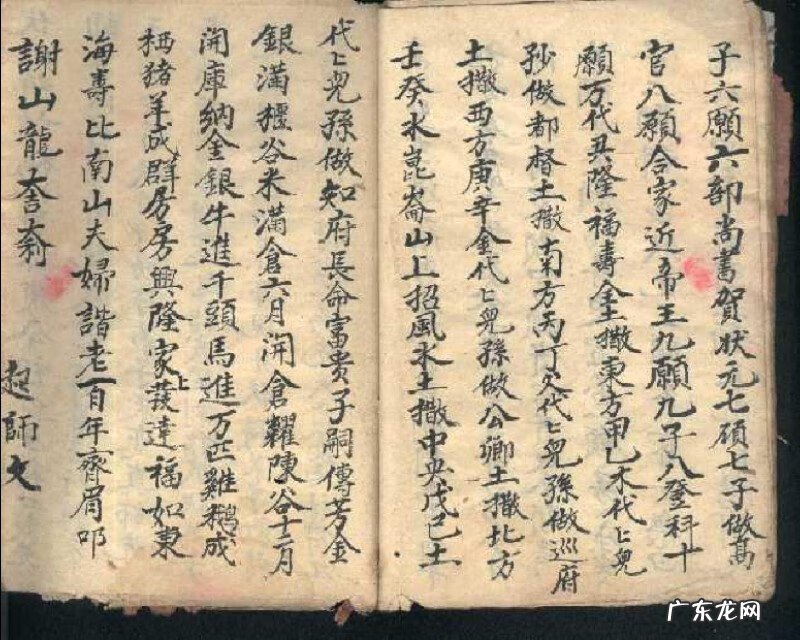 子六願六部尚書賀狀元七願七子做高
官八願合家近帝王九願九子八登科十
願万代興隆福壽全土撒東方甲乙木代代兒
孫做都督土撒南方丙丁火代代兒孫做巡府
土撒西方庚辛金代代兒孫做公卿土撒北方
壬癸水崑崙山上招風水土撒中央戊己土
代代兒孫做知府長命富贵子嗣傳芳金
銀滿櫃谷米滿倉六月開倉糶陳谷十二月
開庫納金銀牛進千頭馬進万匹雞鵝成
栖猪羊成群房房興隆家上發達福如東
海壽比南山夫婦諧老百年齊眉叩
謝山龍
起師文
广东龙网